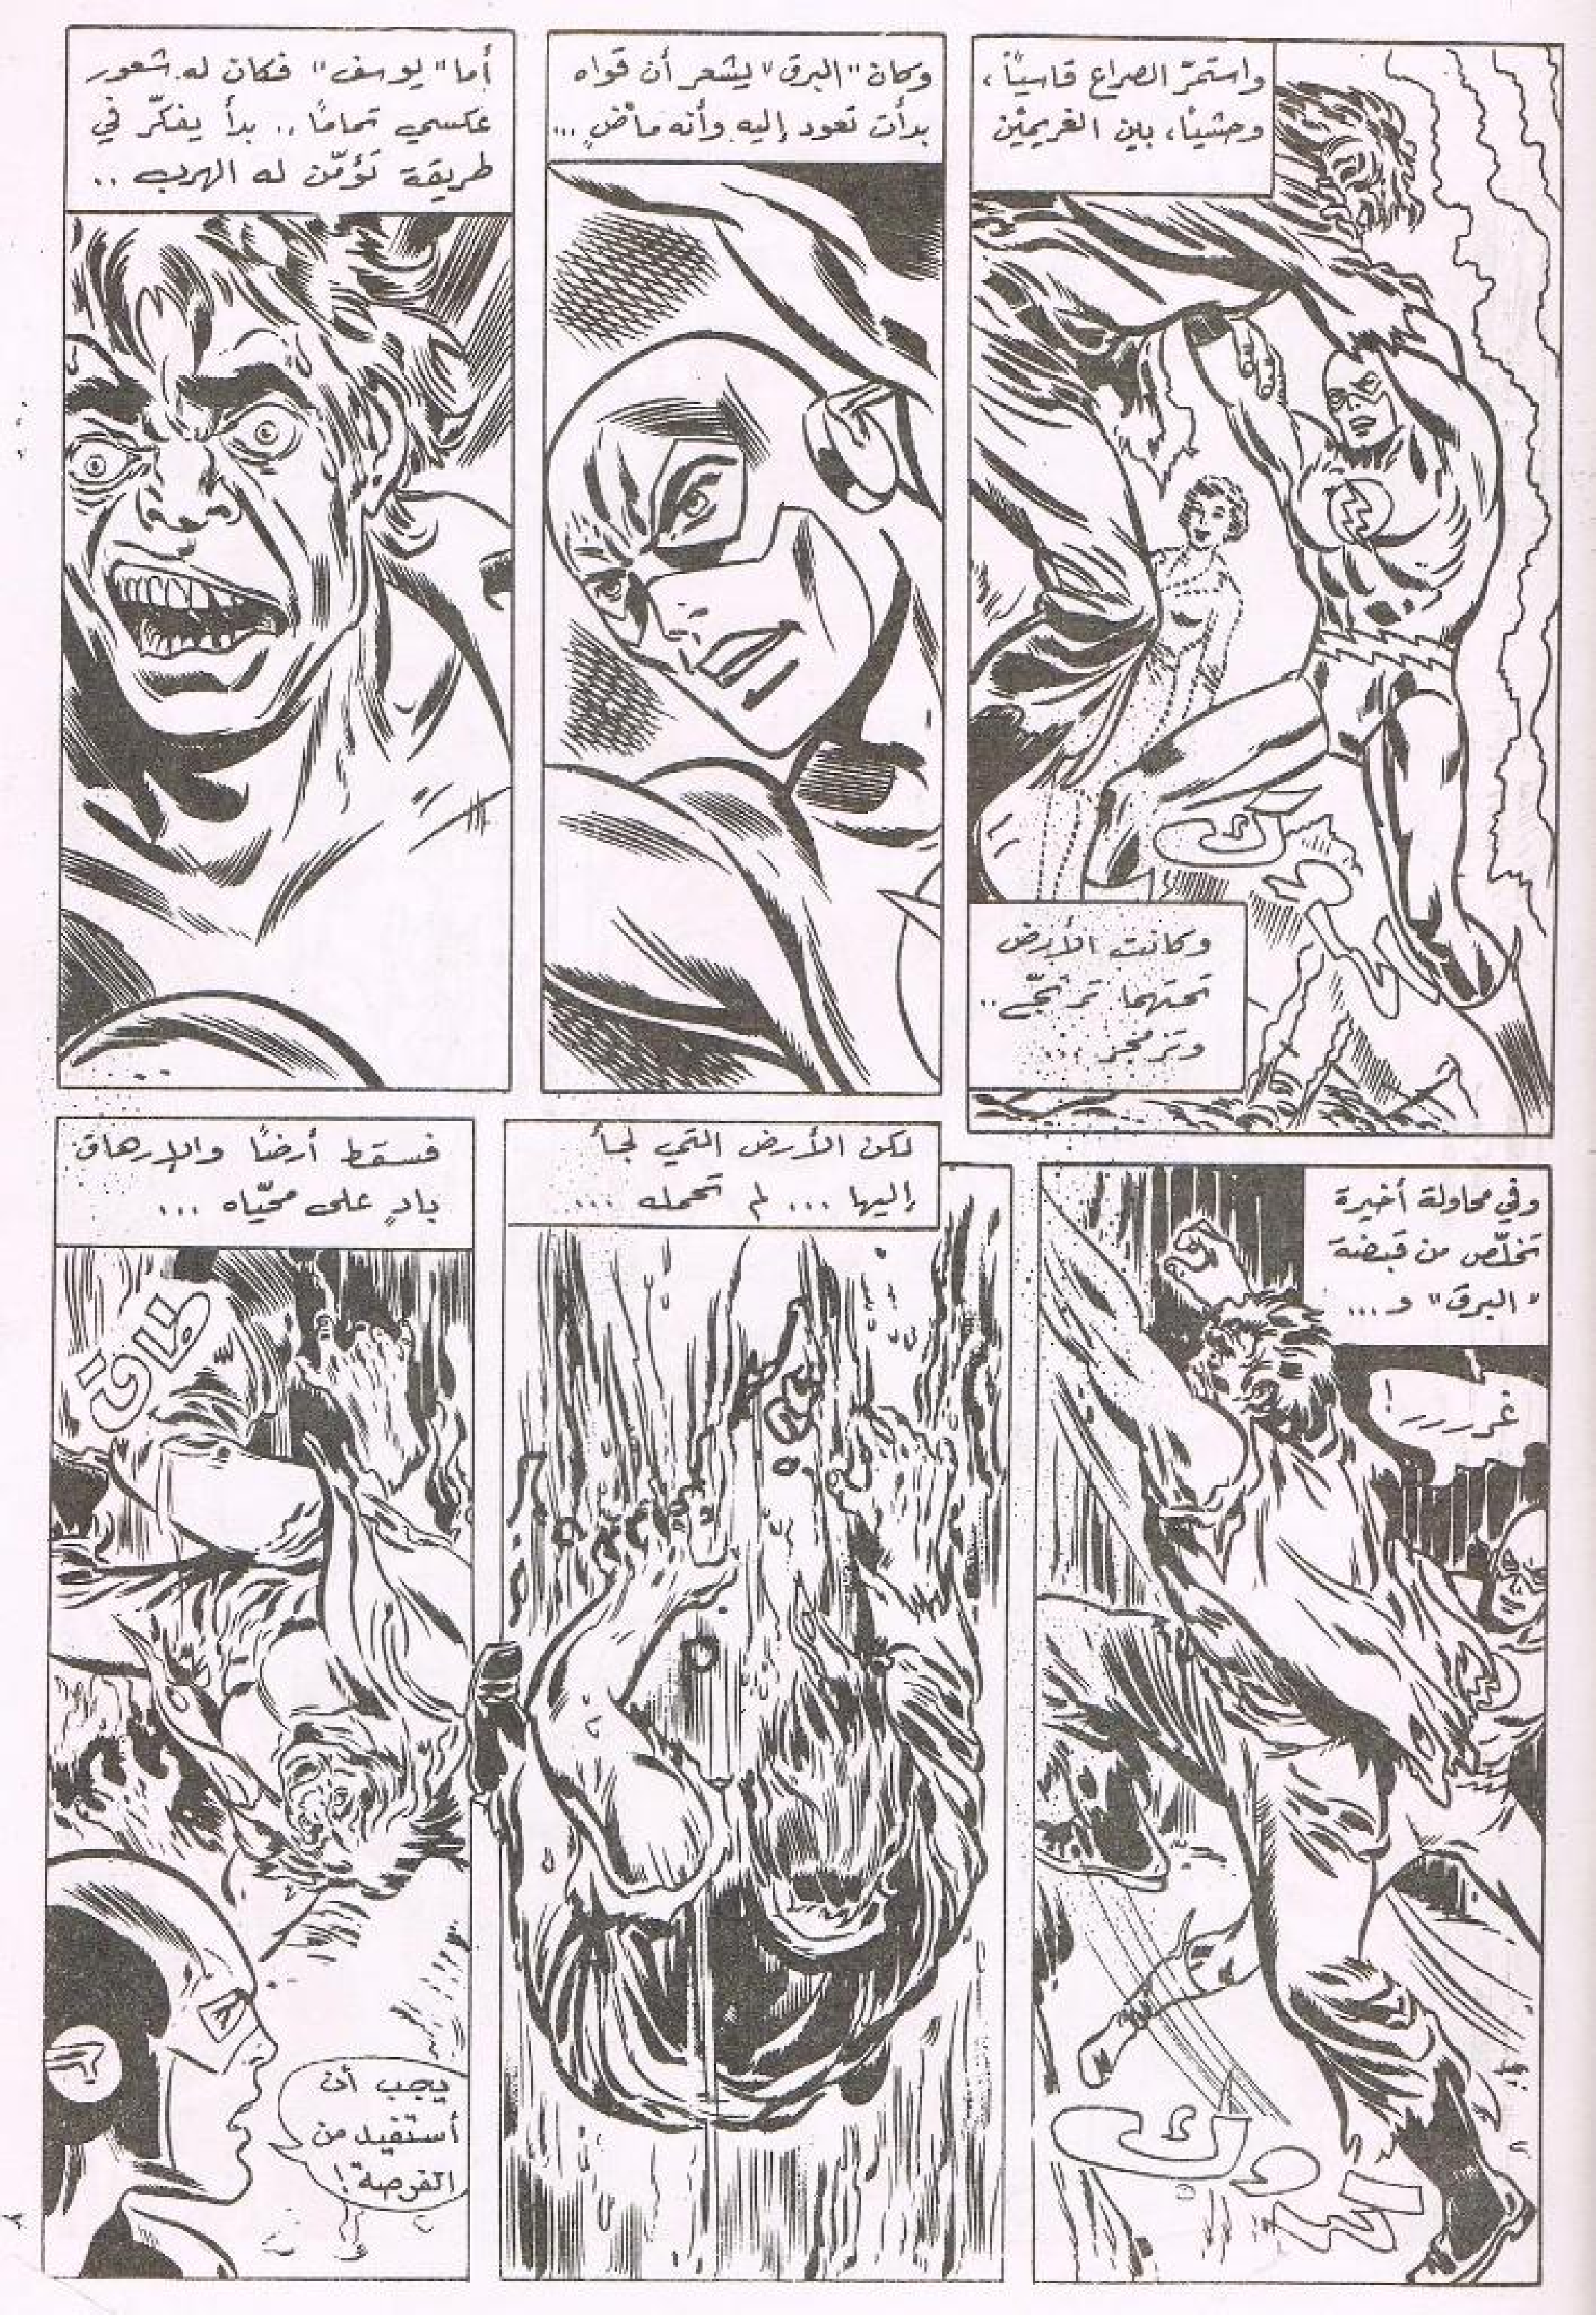 واستمرّ الصراع قاسياً،
وحشياً، بين الغريمين
وكانت الأرض
تحتهما ترتجّ..
وتزمجر...
وكان "البرق" يشعر أن قواه
بدأت تعود إليه وأنه ماضٍ...
أما "يوسف" فكان له شعور
عكسي تماماً.. بدأ يفكّر في
طريقة تؤمّن له الهرب..
وفي محاولة أخيرة
تخلّص من قبضة
"البرق" و...
غرررر!
لكن الأرض التي لجأ
إليها... لم تحمله...
فسقط أرضاً والإرهاق
بادٍ على محيّاه...
طاق
يجب أن
أستفيد من
الفرصة!